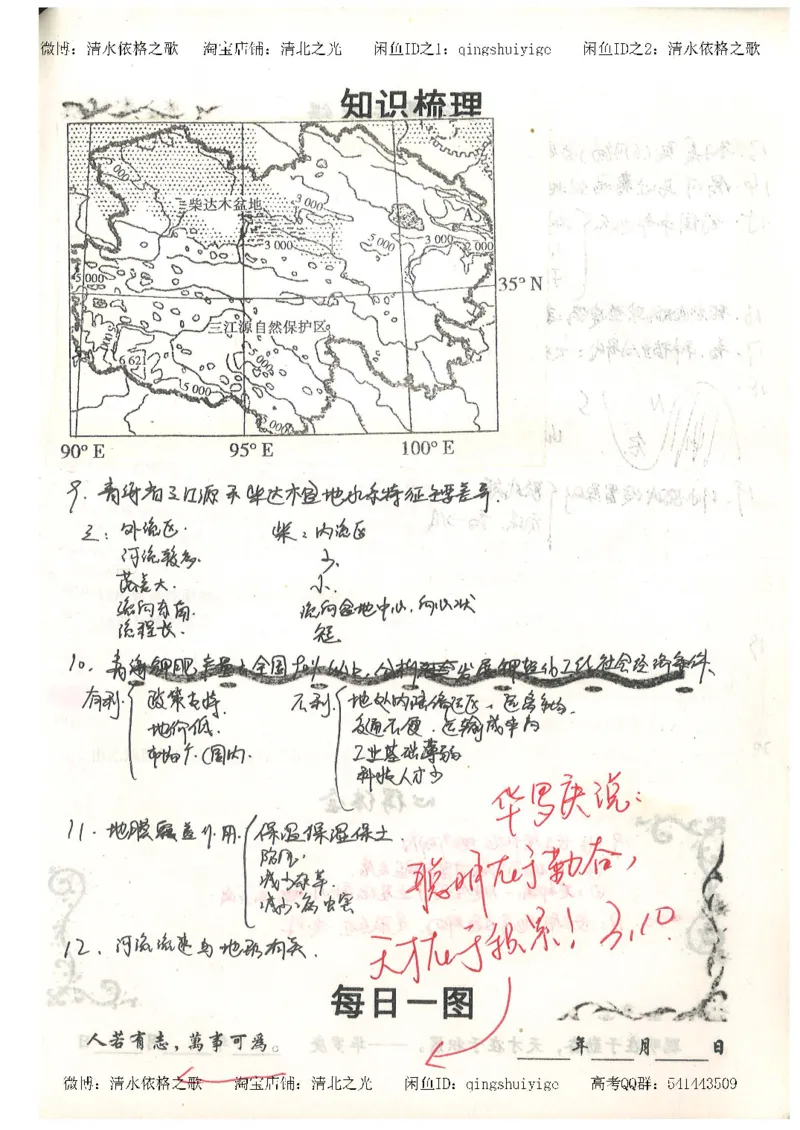 微博：清水依格之歌 淘宝店铺：清北之光 闲鱼ID之1：qingshuiyige 闲鱼ID之2：清水依格之歌
知识梳理
柴达木盆地
3 000
3 000
5 000
3 000
2 000
A
5 000
35° N
三江源自然保护区
6 621
5 000
5 000
90° E 95° E 100° E
9. 青海省三江源和柴达木盆地水系特征主要差异.
三：外流区. 柴：内流区
河流较多. 少.
落差大. 小.
流向东南. 流向盆地中心，向心状
流程长. 短
10. 青海钾肥产量占全国 社会经济条件、
有利 政策支持. 不利. 地处内陆
地价低. 交通不便. 运输成本高
市场广.(国内. 工业基础薄弱
科技人才少
11. 地膜覆盖作用. 保温保湿保土.
减少杂草.
减少病虫害
12. 河流流速与地形有关.
华罗庚说：
聪明在于勤奋，
天才在于积累！ 3.10
每日一图
人若有志，萬事可為。 年 月 日
微博：清水依格之歌 淘宝店铺：清北之光 闲鱼ID：qingshuiyige 高考QQ群：541443509